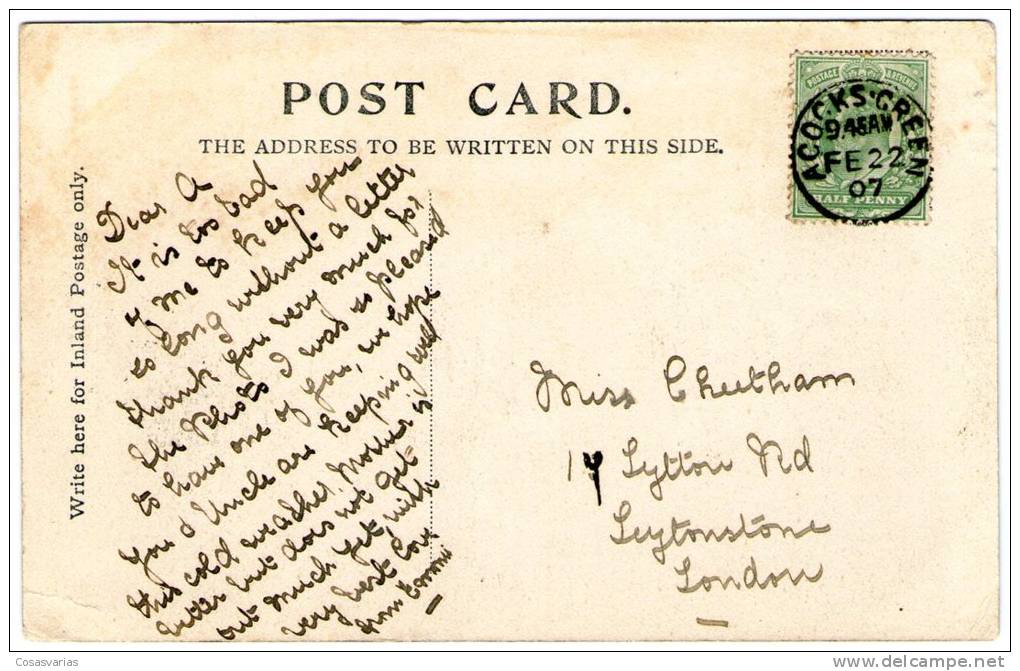 POST CARD.
THE ADDRESS TO BE WRITTEN ON THIS SIDE.
Write here for Inland Postage only.
POSTAGE & REVENUE
ACOCKS·GREEN
9.45AM
FE 22
07
HALF PENNY
Dear A
It is too bad
of me to keep you
so long without a letter
thank you very much for
the Photo I was so pleased
to have one of you, we hope
you & Uncle are keeping well
this cold weather, Mother is
better but does not get
out much yet, with
very best love
from
Miss Cheetham
Lytton Rd
Leytonstone
London
Cosasvarias
delcampe.net